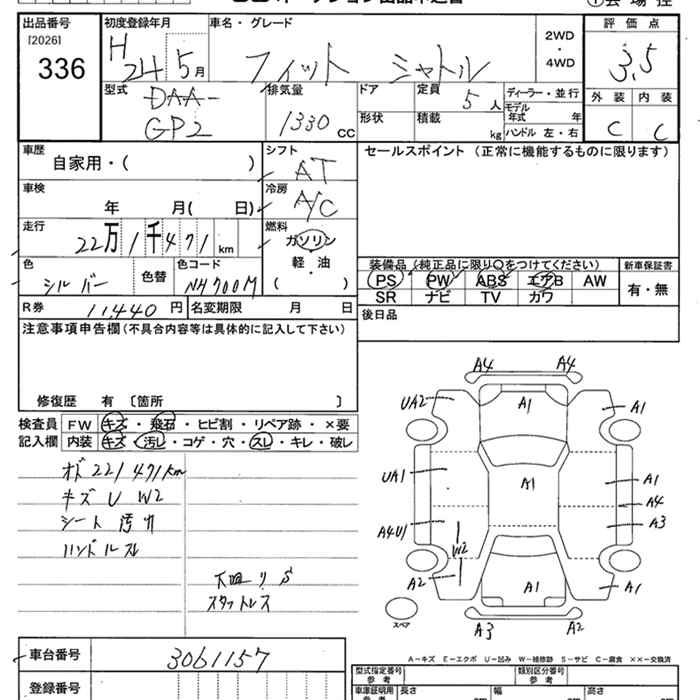 出品番号
[2026]
336
初度登録年月
H 24 5月
車名・グレード
フィット シャトル
2WD
・
4WD
評価点
3.5
外装 内装
C C
型式
DAA-
GP2
排気量
1330 CC
ドア
形状
定員 5人
積載 kg
ディーラー・並行
モデル年式 年
ハンドル 左・右
車歴
自家用・( )
シフト
AT
セールスポイント (正常に機能するものに限ります)
車検
年 月( 日)
冷房
A/C
走行
22万1千471km
燃料
ガソリン
軽・油
( )
色
シルバー
色替
色コード
NH700M
装備品 (純正品に限り○をつけてください)
PS PW ABS エアB AW
SR ナビ TV カワ
新車保証書
有・無
R券 11,440円
名変期限 月 日
後日品
注意事項申告欄 (不具合内容等は具体的に記入して下さい)
修復歴 有 〔箇所 〕
検査員
記入欄
FW キズ・飛石・ヒビ割・リペア跡・×要
内装 キズ・汚レ・コゲ・穴・スレ・キレ・破レ
オド221471km
キズ U W2
シート 汚れ
ハンドルスレ
スタットレス
A4 A4
UA2 A1 A1
UA1 A1 A1
A4
A4U1 W2 A3
A2 A1 A1
スペア
A3 A2
A-キズ E-エクボ U-凹み W-補修跡 S-サビ C-腐食 ××-交換済
車台番号 3061157
登録番号
型式指定番号
参考
類別区分番号
参考
車庫証明用
長さ 幅 高さ